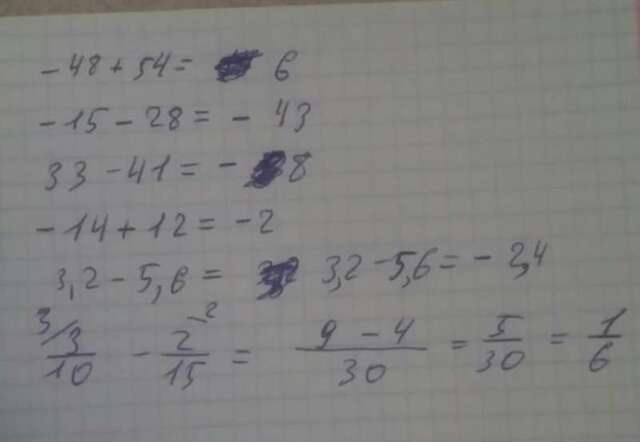 -48+54= 6
-15-28=- 43
33-41=- 8
-14+12=-2
3,2-5,6= 3,2-5,6=-2,4
3/ 3/10 - 2/15 -2 = 9-4/30 = 5/30 = 1/6